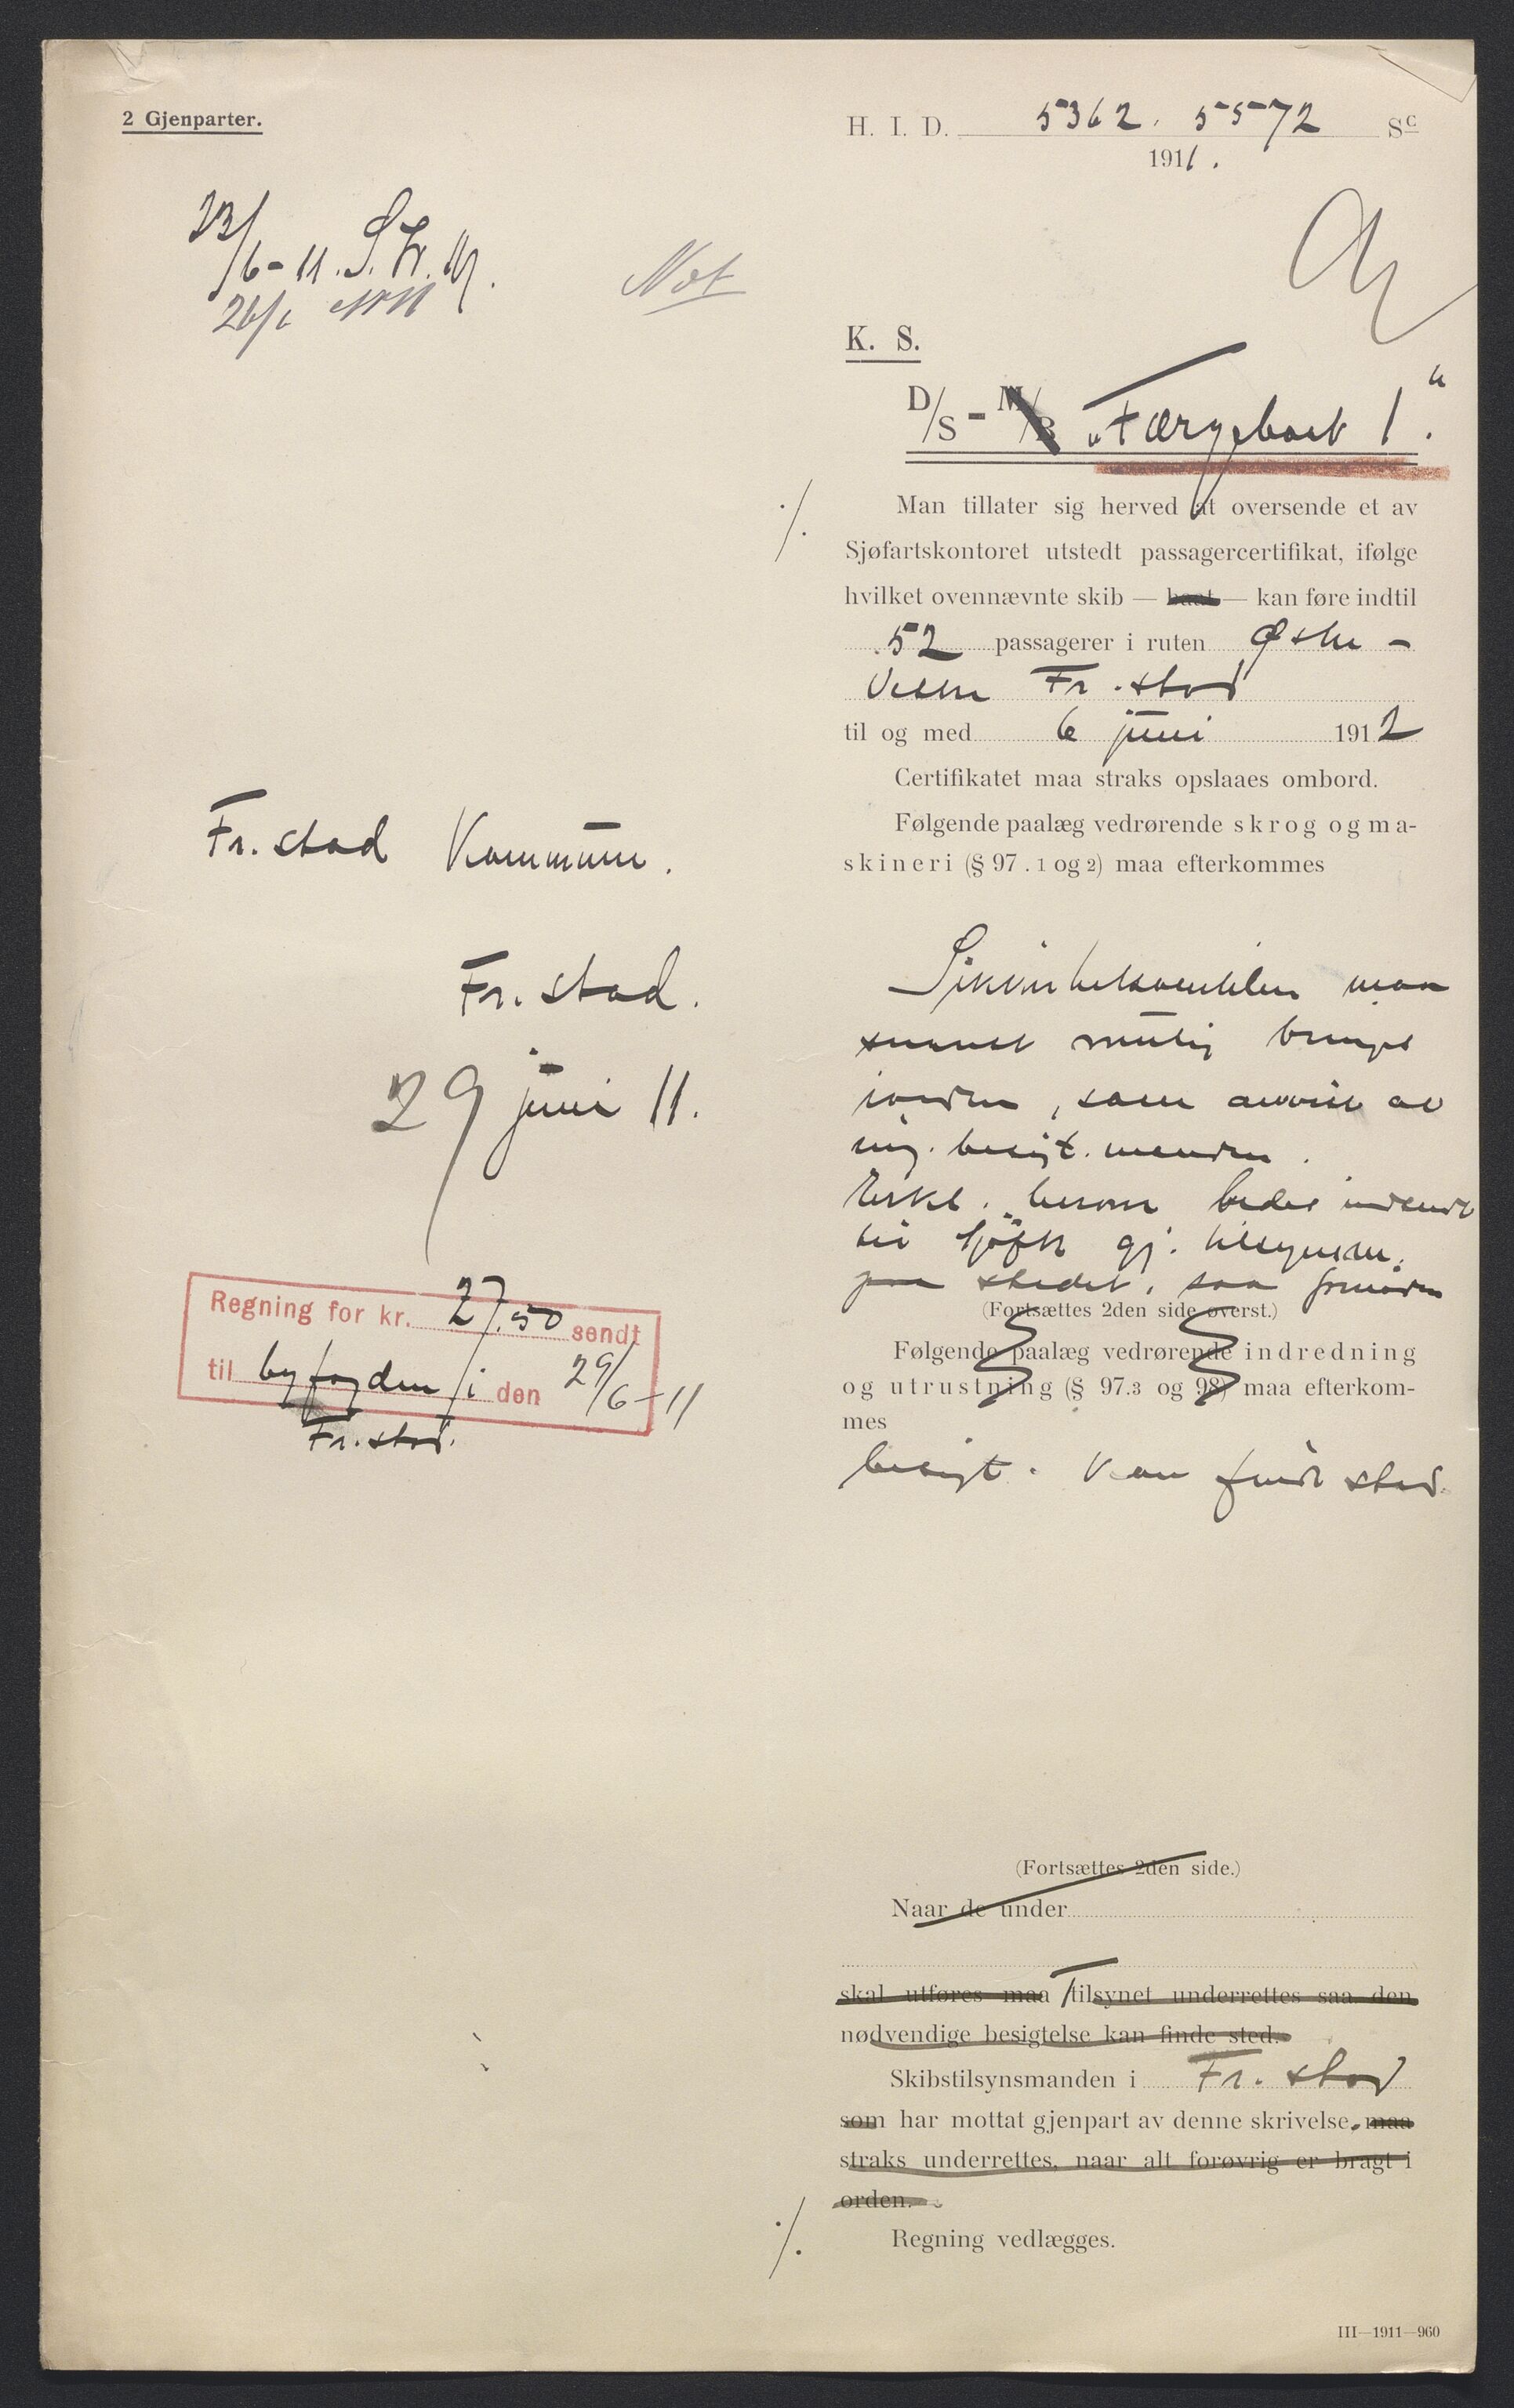 2 Gjenparter.
H. I. D. 5362. 5572 Sc
1911.
23/6-11. S.
26/6
Not
K. S.
D/S - M/B „Færgebaat 1“.
Man tillater sig herved at oversende et av
Sjøfartskontoret utstedt passagercertifikat, ifølge
hvilket ovennævnte skib — baat — kan føre indtil
52 passagerer i ruten Østre -
Vestre Fr.stad
til og med 6 juni 1912
Certifikatet maa straks opslaaes ombord.
Følgende paalæg vedrørende skrog og ma-
skineri (§ 97. 1 og 2) maa efterkommes
Fr.stad Kommune.
Fr.stad.
29 juni 11.
Sikkerhetsventilen maa
snarest mulig bringes
iorden, som anvist av
ing. besigt. manden.
Erkl. herom bedes indsendt
til Sjøfk gj. tilsynsm.
paa stedet, saa fornøden
(Fortsættes 2den side øverst.)
Følgende paalæg vedrørende indredning
og utrustning (§ 97.3 og 98) maa efterkom-
mes
besigt. kan finde sted.
Regning for kr. 27.50 sendt
til byfogden i den 29/6-11
Fr.stad.
(Fortsættes 2den side.)
Naar de under
skal utføres maa tilsynet underrettes saa den
nødvendige besigtelse kan finde sted.
Skibstilsynsmanden i Fr.stad
som har mottat gjenpart av denne skrivelse, maa
straks underrettes, naar alt forøvrig er bragt i
orden.
Regning vedlægges.
III—1911—960